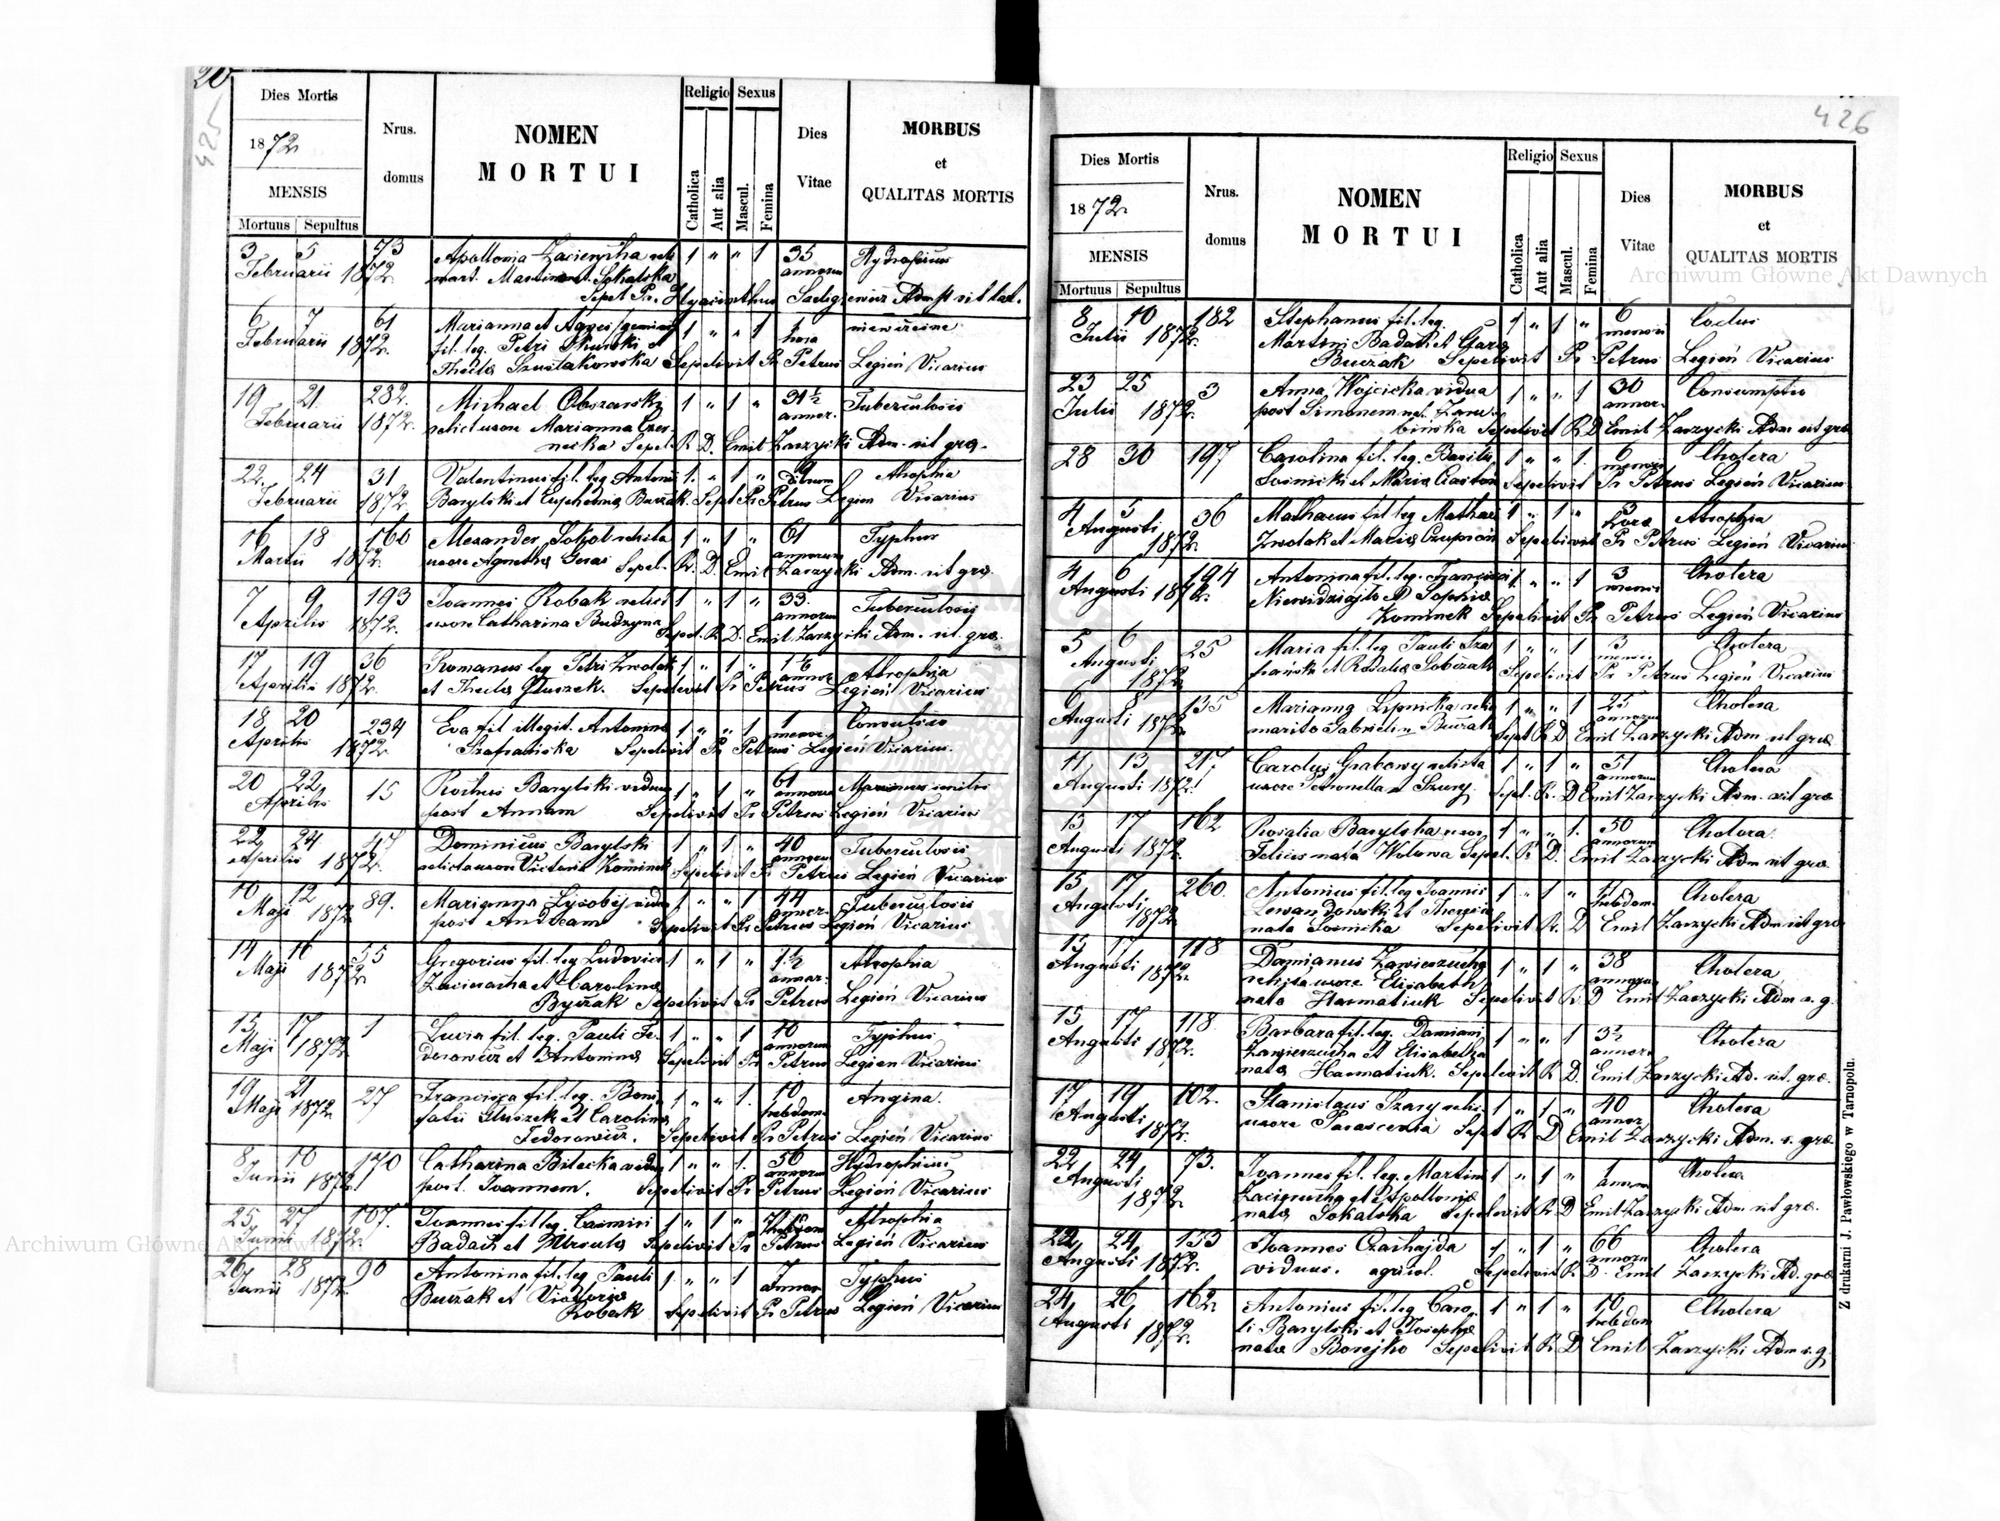 20
425
Dies Mortis
1872
MENSIS
Mortuus Sepultus
Nrus.
domus
NOMEN
MORTUI
Religio
Catholica
Aut alia
Sexus
Mascul.
Femina
Dies
Vitae
MORBUS
et
QUALITAS MORTIS
3 5 73 Apollonia 1 " " 1 35
Februarii 1872 annorum
6 7 61 Marianna et Agnes 1 " " 1 1
Februarii 1872. fil. leg. Petri hora
Thecla Szustakowska Sepelivit Pr Petrus Legień Vicarius
19 21 282. Michael 1 " 1 " 31½ Tuberculosis
Februarii 1872. relict uxore Marianna annor.
Sepel. R. D. Emil Zarzycki Adm. rit. gr.
22. 24 31 Valentinus fil. leg Antonii 1. " 1 " Atrophia
Februarii 1872 Barylski et Euphemia Buczak. Sept Pr Petrus Legien Vicarius
16 18 160 Alexander Sokol relicta 1 " 1 " 61 Typhus
Martii 1872. uxore Agnetha Geras Sepel. R. D. Emil Zarzycki Adm. rit gr.
7 9 193 Joannes Robak relict 1 " 1 " 33. Tuberculosis
Aprilis 1872. uxore Catharina Budzyna annorum
Sepel. R D. Emil Zarzycki Adm. rit. gr.
17 19 36 Romanus leg Petri Zwolak 1 " 1 " Atrophia
Aprilis 1872. et Thecla Gluszek. Sepelivit Pr Petrus Legień Vicarius
18 20 234 Eva fil illegit. Antonina 1 " " 1 1
Aprilis 1872. Szafrańska Sepelivit Pr Petrus Legień Vicarius.
20 22 15 Rochus Barylski viduus 1 " 1 " 61 annorum
Aprilis post Annam Sepelivit Pr Petrus Legień Vicarius
22 24 47 Dominicus Barylski 1 " 1 " 40 Tuberculosis
Aprilis 1872. relicta uxore Victoria Kominek Sepelivit Pr Petrus Legień Vicarius
10 12 89. Marianna vidua 1 " " 1 44 Tuberculosis
Maji 1872 post Andream Sepelivit Pr Petrus Legień Vicarius
14 16 55 Gregorius fil. leg Ludovici 1 " 1 " 1½ Atrophia
Maji 1872 et Carolina annor.
Sepelivit Pr Petrus Legień Vicarius
15 17 1 Lucia fil. leg. Pauli Fe- 1 " " 1 10 Typhus
Maji 1872. dorowicz et Antonina Sepelivit Pr Petrus Legien Vicarius
19 21 27 Francisca fil. leg. Boni- 1 " " 1. 10 Angina.
Maji 1872. fatii Gluszek et Carolina hebdom.
Fedorowicz. Sepelivit Pr Petrus Legień Vicarius
8 10 170 Catharina Bilecka vidua 1 " " 1. 50
Junii 1872. post. Joannem. Sepelivit Pr Petrus Legień Vicarius
25 27 107. Joannes fil leg. Casimiri 1 " 1 " Atrophia
Junii 1872. Badach et Ursula Sepelivit Pr Petrus Legień Vicarius
26 28 90 Antonina fil. leg Pauli 1. " " 1 Typhus
Junii 1872. Buczak et Victoria
Robak Sepelivit Pr Petrus Legień Vicarius
426
Dies Mortis
1872.
MENSIS
Mortuus Sepultus
Nrus.
domus
NOMEN
MORTUI
Religio
Catholica
Aut alia
Sexus
Mascul.
Femina
Dies
Vitae
MORBUS
et
QUALITAS MORTIS
8 10 182 Stephanus fil. leg. 1 " 1 " 6
Julii 1872. Martini Badach et mensii
Buczak Sepelivit Pr Petrus Legień Vicarius
23 25 3 Anna Wojcicka vidua 1 " " 1 30
Julii 1872. post Simonem annor.
Sepelivit R D Emil Zarzycki Adm rit gr.
28 30 197 Carolina fil. leg. 1 " " 1. 6 Cholera
Sosnicki et Maria Sepelivit Pr Petrus Legień Vicarius
4 5 36 Mathaeus fil leg Mathaei 1 " 1 " 3 Atrophia
Augusti 1872. Zwolak et Maria Sepelivit Pr Petrus Legień Vicarius
4 6 194 Antonina fil. leg. Francisci 1 " " 1 3 Cholera
Augusti 1872. et Sophia
Kominek Sepelivit Pr Petrus Legień Vicarius
5 6 25 Maria fil. leg Pauli Sza- 1 " " 1 3 Cholera
Augusti 1872 frański et Rosalia Sobczak Sepelivit Pr Petrus Legień Vicarius
6 8 135 Marianna Lipnicka 1 " " 1 25 Cholera
Augusti 1872. marito Gabriel Buczak Sept R D Emil Zarzycki Adm rit gr.
11 13 217 Carolus Grabowy relicta 1 " 1 " 51 Cholera
Augusti 1872. uxore Petronella Sepel. R. D Emil Zarzycki Adm. rit gr.
15 17 162 Rosalia Barylska uxor 1 " " 1. 50 Cholera.
Augusti 1872. Felicis nata Wolowa Sepel. R D. Emil Zarzycki Adm rit gr.
15 17 260. Antonius fil. leg Joannis 1 " 1 " Cholera
Augusti 1872 Lewandowski et Theresia hebdom.
nata Sosnicka Sepelivit R. D Emil Zarzycki Adm rit gr.
15 17 118 Damianus Zawierzucha 1 " 1 " 38 Cholera
Augusti 1872. relicta uxore Elisabeth annorum
nata Harmatiuk Sepelivit R D Emil Zarzycki Adm r. g.
15 17 118 Barbara fil. leg. Damiani 1 " " 1 3½ Cholera
Augusti 1872. Zawierzucha et Elisabetha annor.
nata Harmatiuk. Sepelivit R D. Emil Zarzycki Ad. rit. gr.
17 19 102. Stanislaus Szary relic. 1 " 1 " 40 Cholera
Augusti 1872. uxore Parascevia Sept R D Emil Zarzycki Adm. r. gr.
22 24 73. Joannes fil. leg. Martini 1 " 1 " 1 Cholera
Augusti 1872 et Apollonia
nata Sokalska Sepelivit R D Emil Zarzycki Adm. rit gr.
22 24 153 Joannes 1 " 1 " 66 Cholera
Augusti 1872. viduus. agricol. Sepelivit R D. Emil Zarzycki Ad. gr.
24 26 162 Antonius fil. leg Caro- 1 " 1 " 10 Cholera
Augusti 1872. li Barylski et Josepha hebdom
nata Borejko Sepelivit R D Emil Zarzycki Adm r. g.
Z drukarni J. Pawłowskiego w Tarnopolu.
Archiwum Główne Akt Dawnych
Archiwum Główne Akt Dawnych